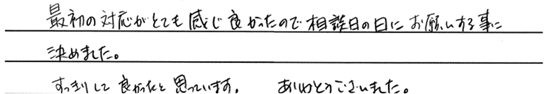 最初の対応がとても感じ良かったので相談日の日にお願いする事に
決めました。
すっきりして良かったと思っています。 ありがとうございました。